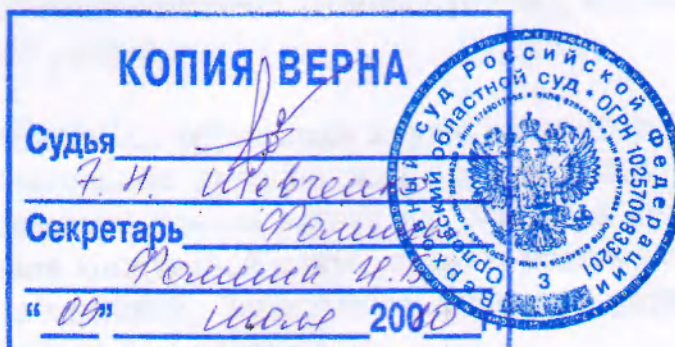 КОПИЯ ВЕРНА
Судья
Шевченко
Секретарь Фомина
Фомина Н.В
“09” июля 20010 г
Верховный суд Российской Федерации
Орловский областной суд * ОГРН 1025700833201
3